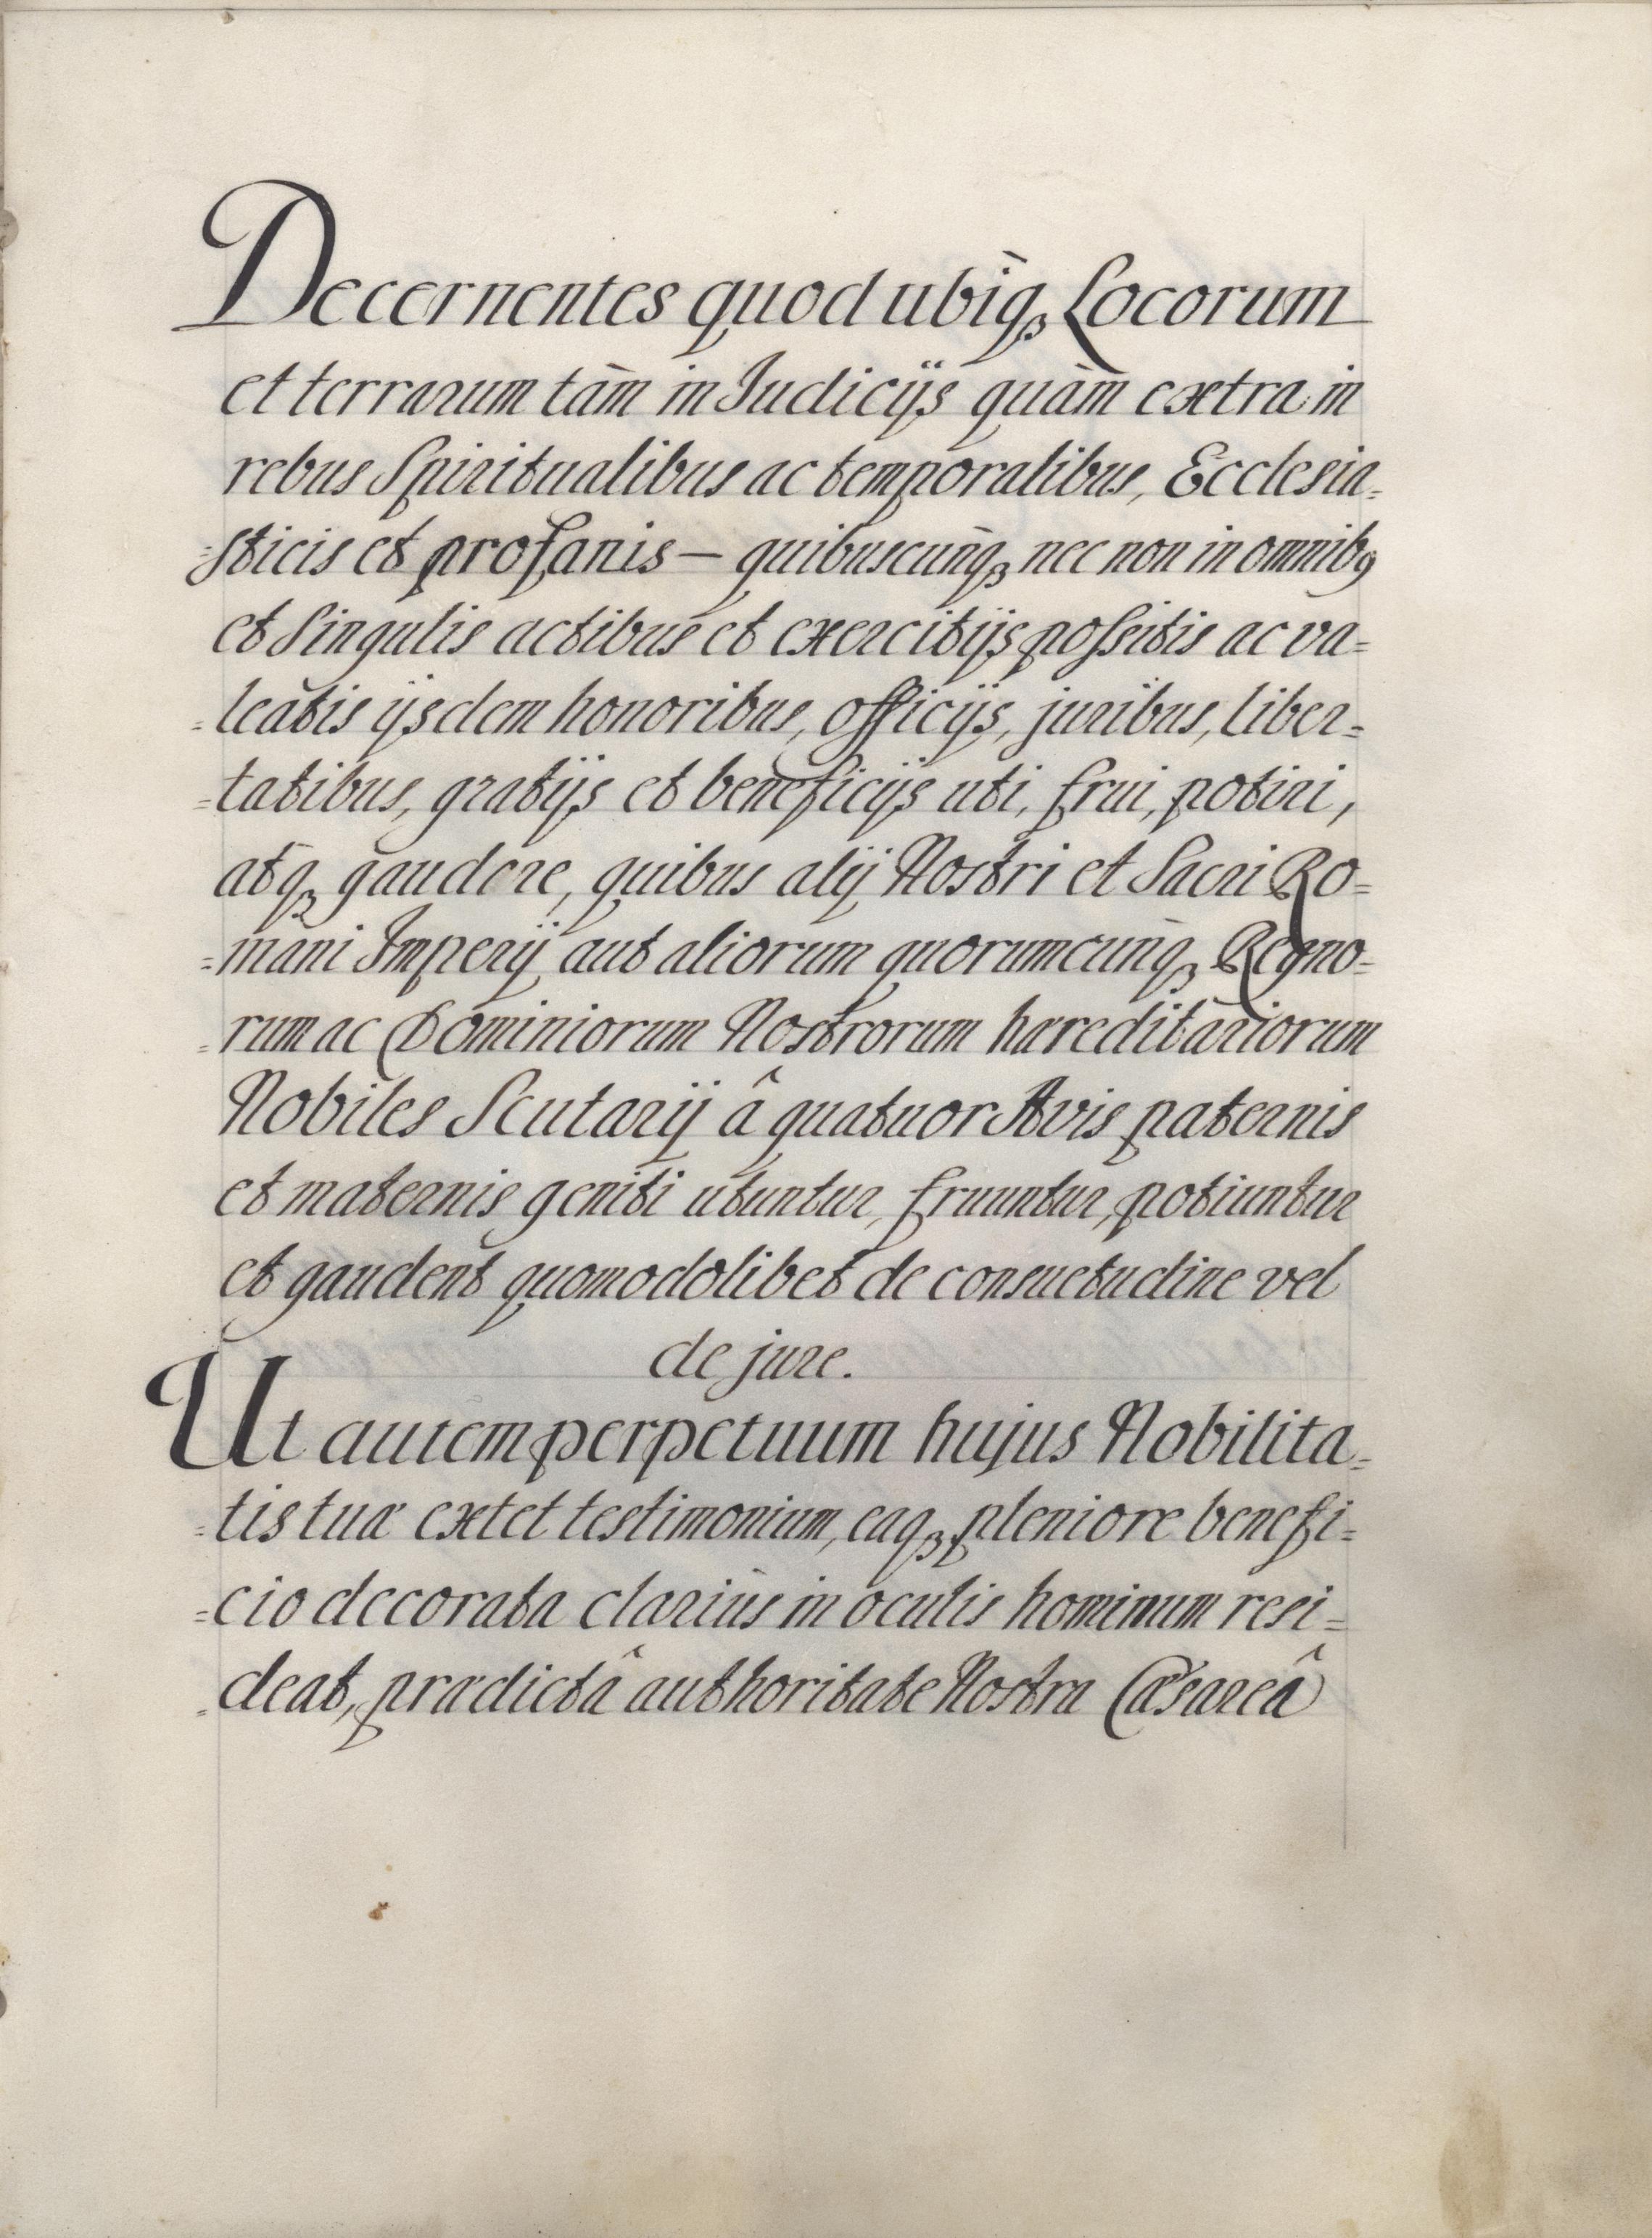 Decernentes quod ubiq̀ꝫ Locorum
et terrarum tàm in Judicijs quàm extra in
rebus Spiritualibus ac temporalibus, Ecclesia=
=sticis et profanis — quibuscunq̀ꝫ nec non in omnibꝰ
et Singulis actibus et exercitijs possitis ac va=
=leatis ijsdem honoribus, officijs, juribus, liber=
=tatibus, gratijs et beneficijs uti, frui, potiri,
atqꝫ gaudere, quibus alij Nostri et Sacri Ro=
=mani Imperij aut aliorum quorumcunq̀ꝫ Regno=
=rum ac Dominiorum Nostrorum hæreditariorum
Nobiles Scutarij â quatuor Avis paternis
et maternis geniti utuntur, fruuntur, potiuntur
et gaudent quomodolibet de consuetudine vel
de jure.
Ut autem perpetuum hujus Nobilita=
=tis tuæ extet testimonium, eaqꝫ pleniore benefi=
=cio decorata clariùs in oculis hominum resi=
=deat, prædictâ authoritate Nostra Cæsareâ